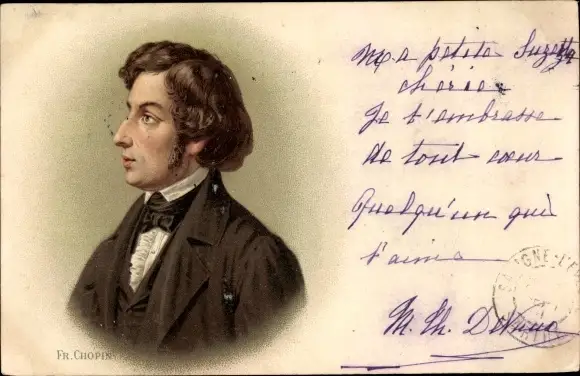 Ma petite Suzette
chérie
Je t'embrasse
de tout cœur
Quelqu'un qui
t'aime
M. Th.
FR. CHOPIN